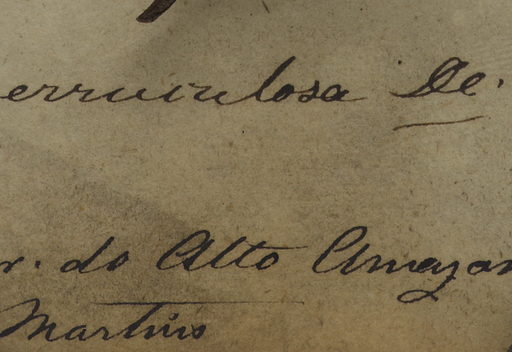 erruculosa De.
r. do Alto Amazon
Martius